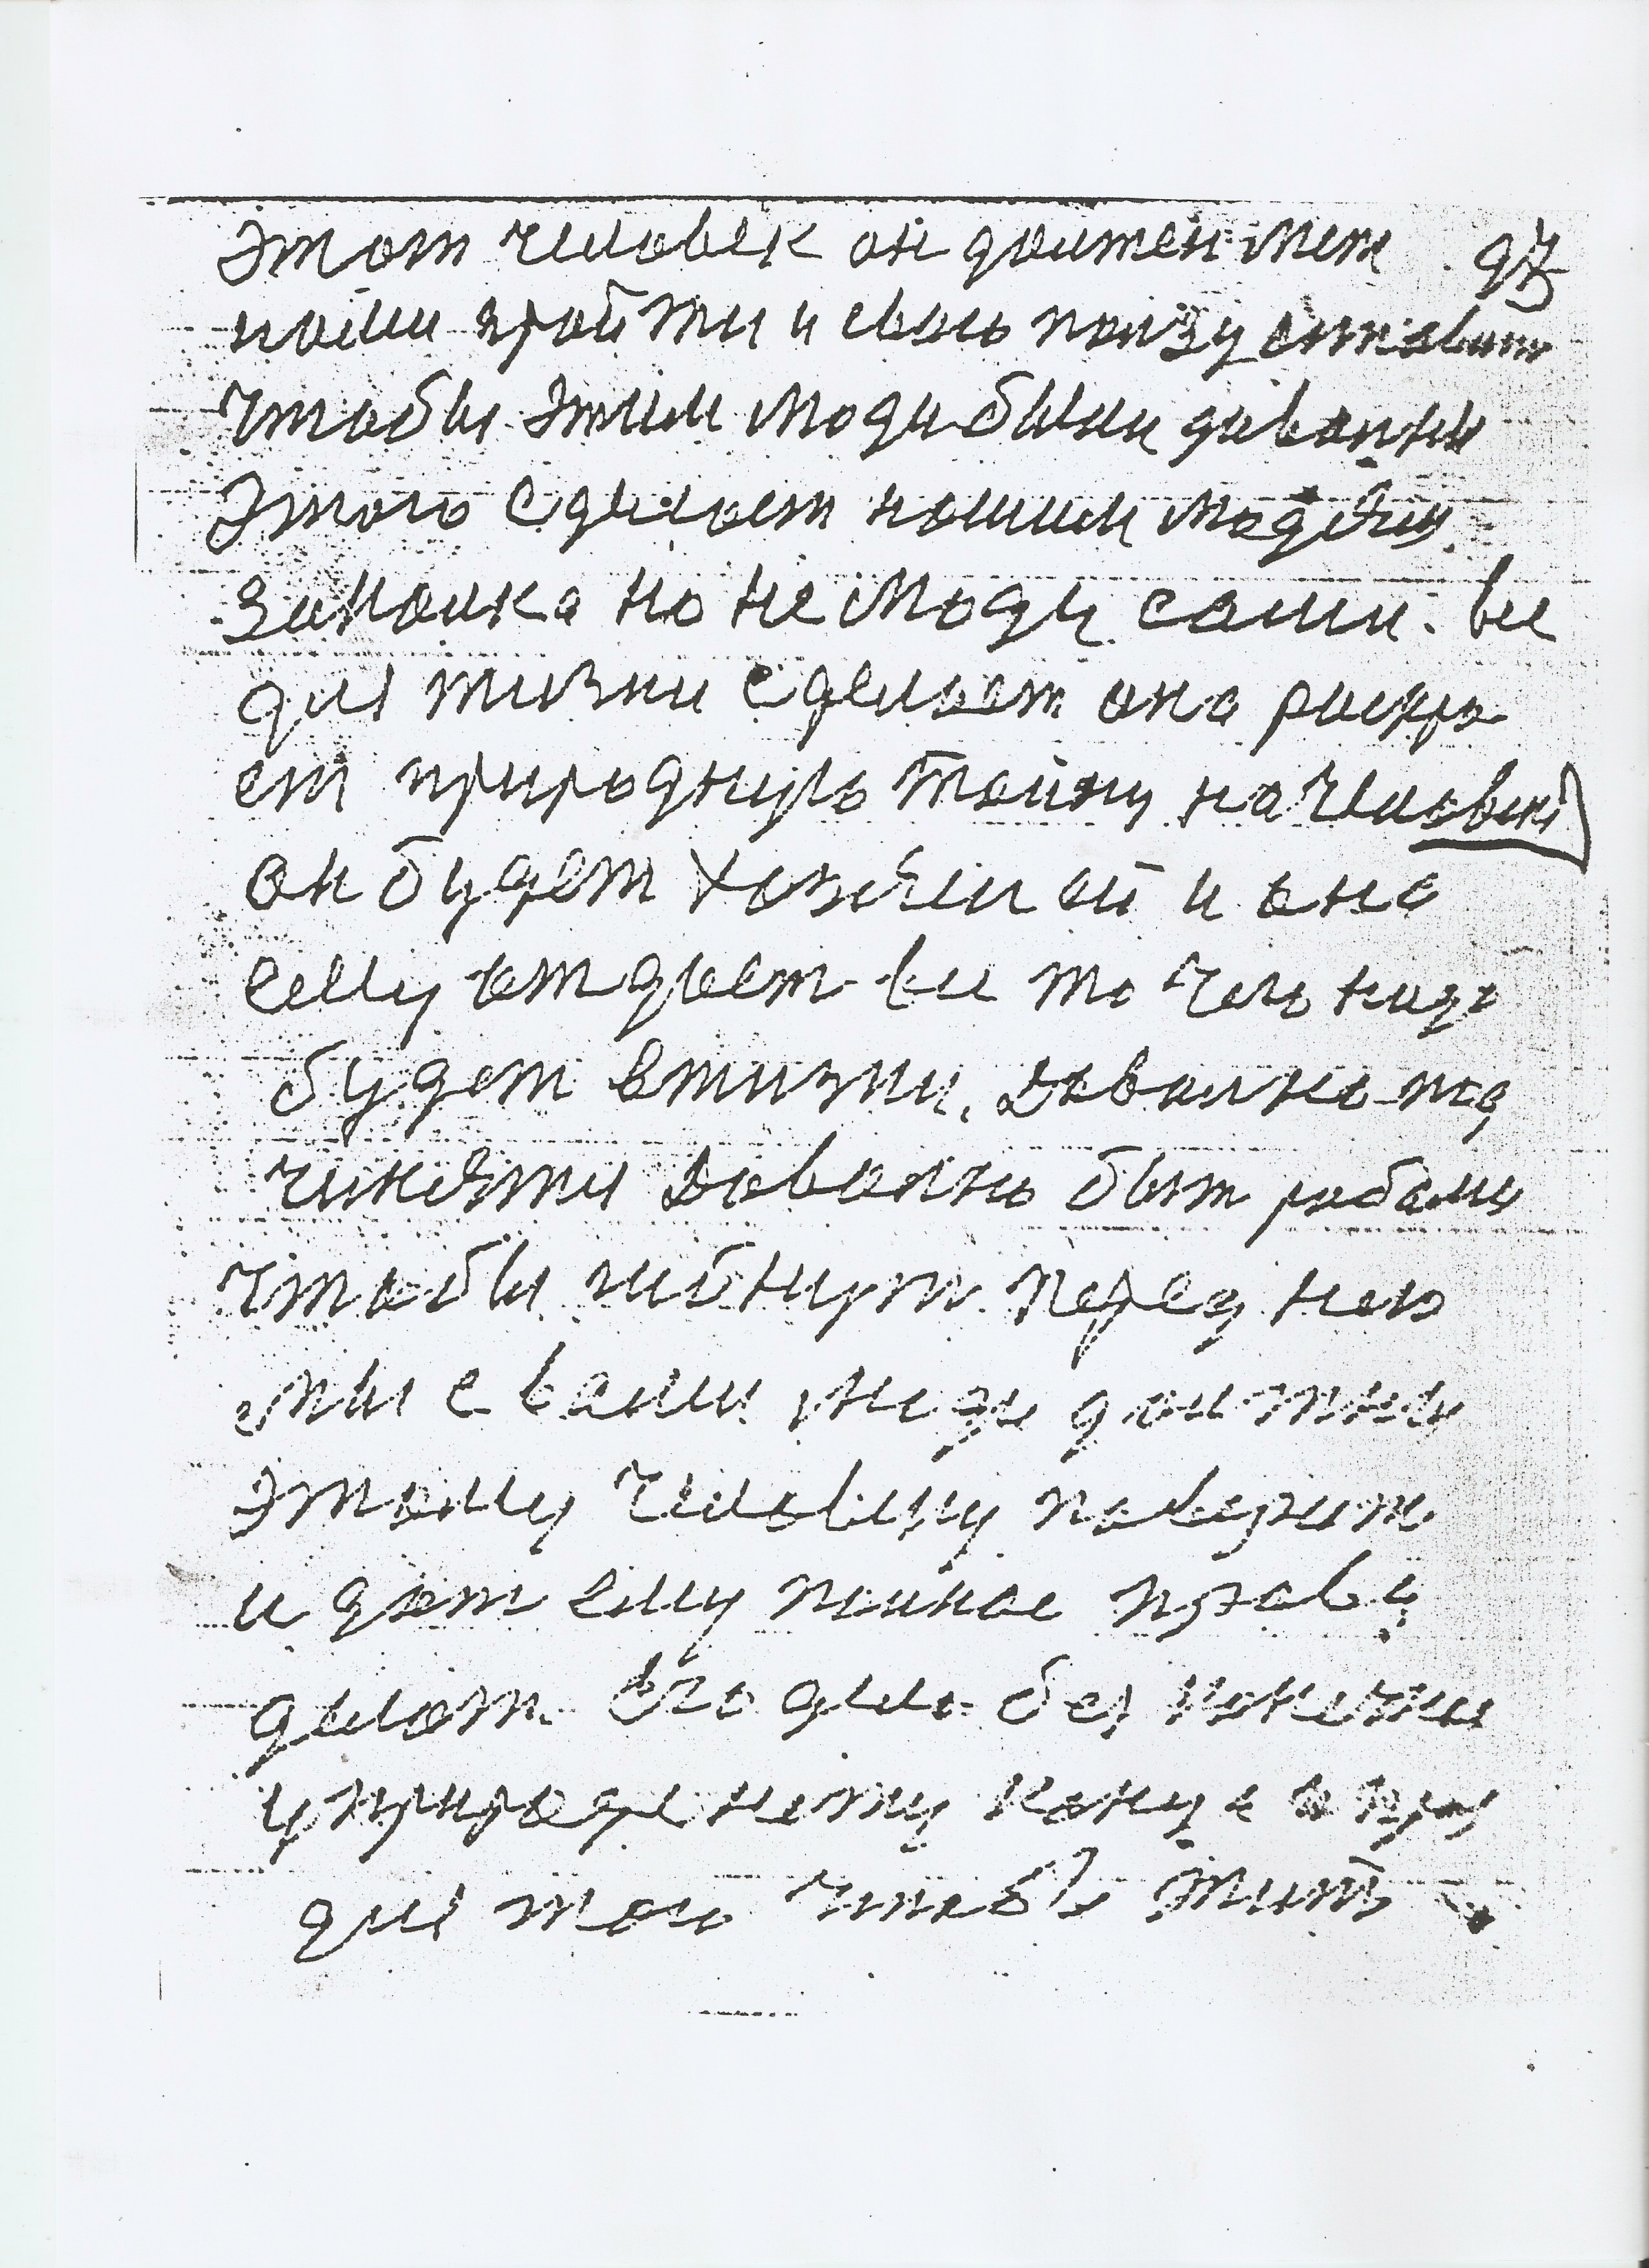 Этот человек он должен меж 97
нами пройти и свою пользу оставить
чтобы этими были довольны
Этого сделает нашими
Закалка но не сами. Все
для жизни сделает она раскро
ет природную тайну на человеки
он будет хозяин ей и она
ему отдает все то чего надо
будет вжизни. Довольно под
чинятся Довольно быт рабами
чтобы гибнут перед нею
мы с вами люди должны
этому человеку поверить
и дать ему полное праву
делам. Его дело без
у природе
для того чтобы жить